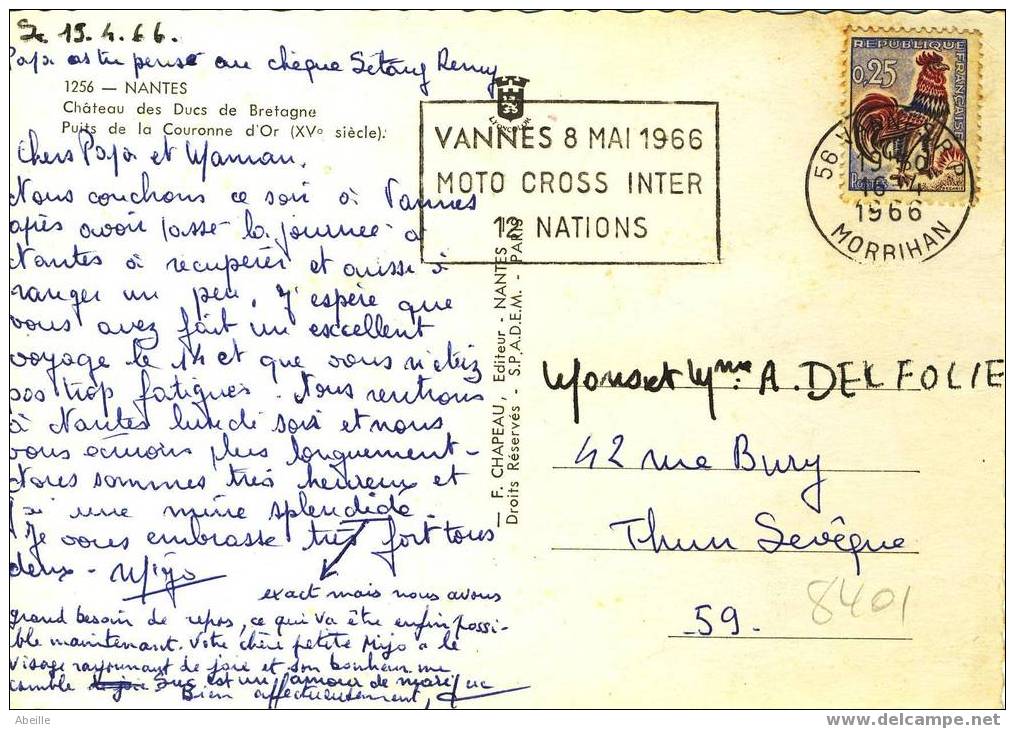 15.4.66.
Papa as tu pensé au chèque Setang Remy
1256 — NANTES
Château des Ducs de Bretagne
Puits de la Couronne d'Or (XVe siècle).
Chers Papa et Maman.
Nous couchons ce soir à Vannes
après avoir passé la journée à
Nantes à récupérer et aussi à
ranger un peu. J'espère que
vous avez fait un excellent
voyage le 14 et que vous n'étiez
pas trop fatigués. Nous rentrons
à Nantes lundi soir et nous
vous écrirons plus longuement -
Nous sommes très heureux et
j'ai une mine splendide.
Je vous embrasse très fort tous
deux - Mijo
exact mais nous avons
grand besoin de repos, ce qui va être enfin possi-
ble maintenant. Votre chère petite Mijo a le
visage rayonnant de joie et son bonheur me
comble Luc est un amour de mari
Bien affectueusement, Luc
VANNES 8 MAI 1966
MOTO CROSS INTER
12 NATIONS
REPUBLIQUE FRANÇAISE
0,25
Postes
56 VANNES R.P
16-4
1966
MORBIHAN
— F. CHAPEAU, Editeur - NANTES
Droits Réservés - S.P.A.D.E.M. - PARIS
Mons et Mme A. DELFOLIE
42 rue Bury
Thun Sevêque
59.
8401
Abeille
www.delcampe.net